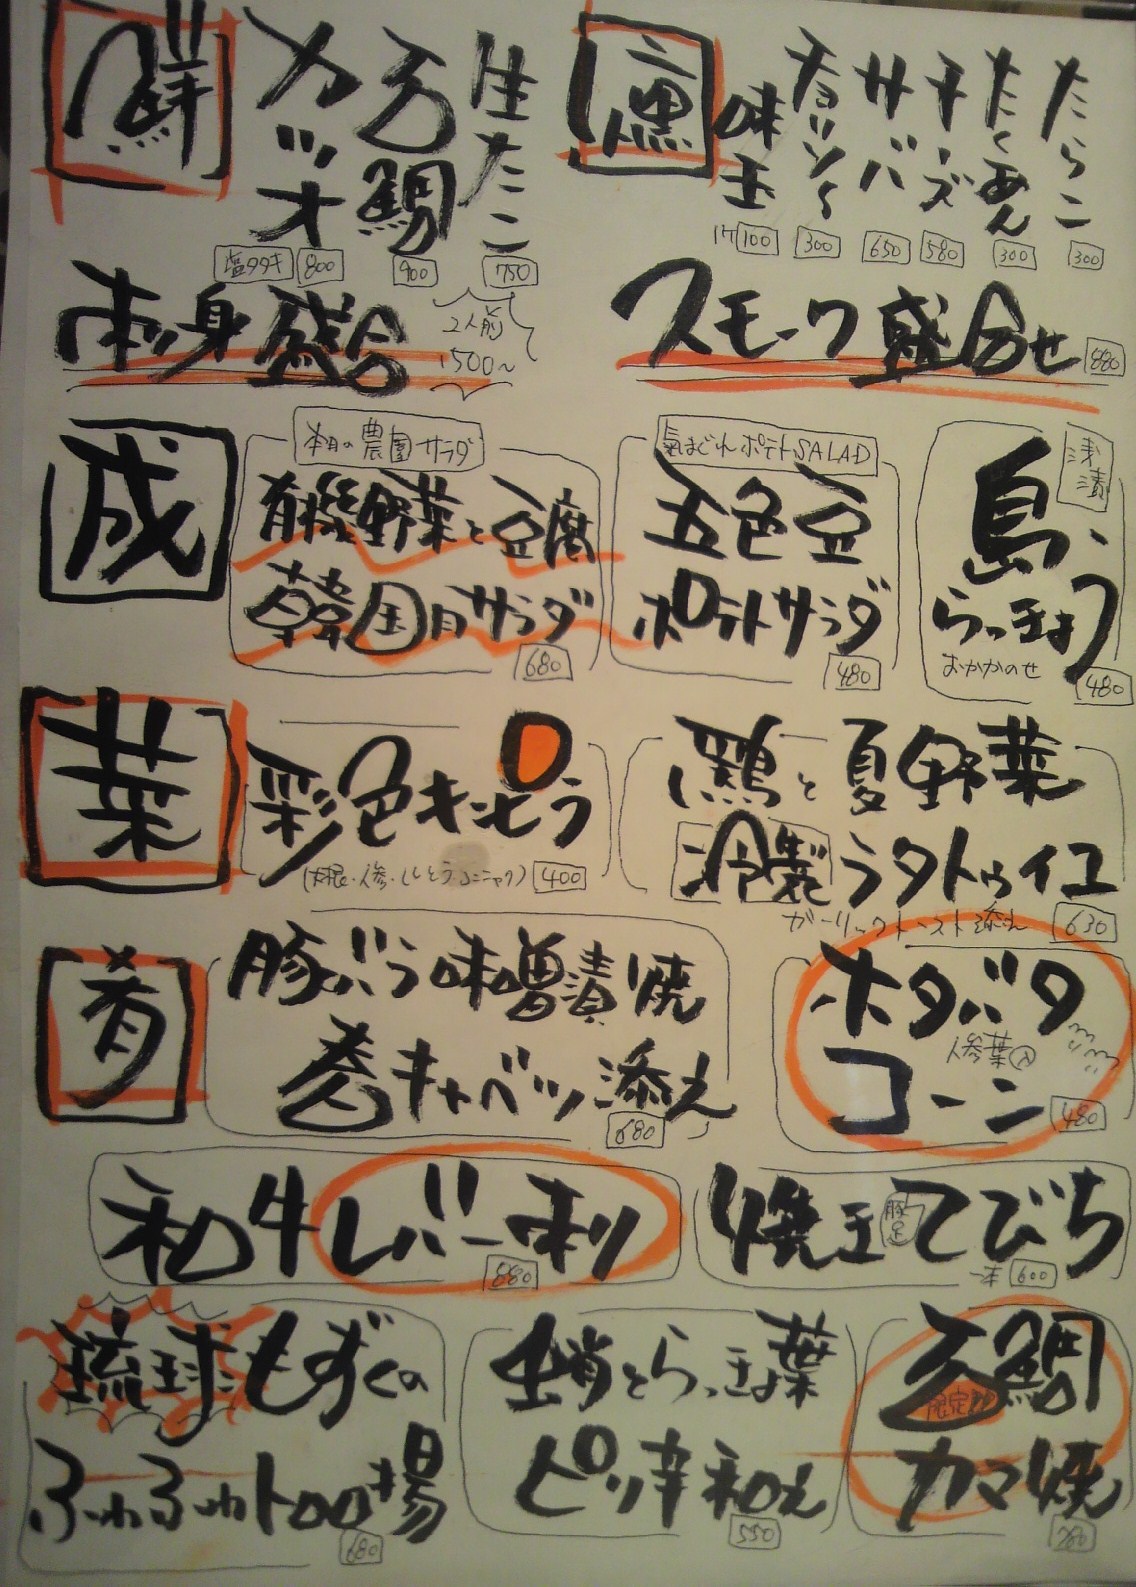 鮮
カツオ
塩タタキ 800
石鯛
900
生たこ
750
刺身盛合
2人前
1500〜
燻
味玉
1ケ 100
チョリソー
300
サバ
650
チーズ
580
たくあん
300
たらこ
300
スモーク盛合せ
880
成
本日の農園サラダ
有機野菜と豆腐
韓国風サラダ
680
気まぐれポテトSALAD
五色豆
ポテトサラダ
480
浅漬
島
らっきょう
おかかのせ
480
菜
彩色キンピラ
400
鶏と夏野菜
冷製ラタトゥイユ
ガーリックトースト添え
630
肴
豚バラ味噌漬焼
巻キャベツ添え
680
ホタバタ
人参葉入
コーン
480
和牛レバー刺
880
焼き豚足てびち
一本 600
琉球もずくの
ふわふわトロロ揚
680
蛸とらっきょ葉
ピリ辛和え
550
石鯛
限定
カマ焼
780